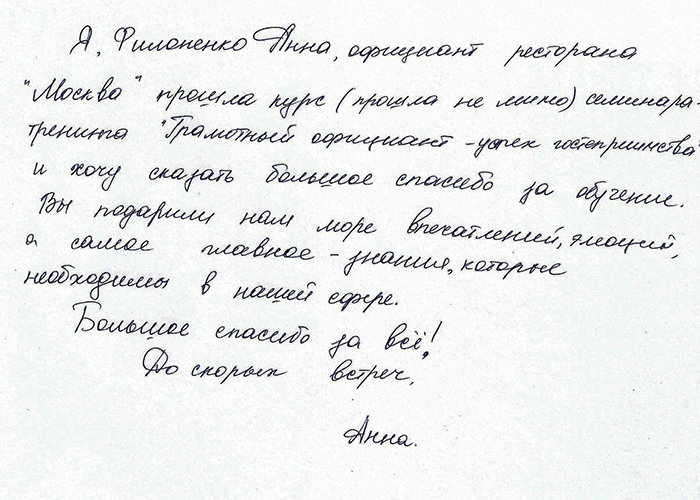 Я, Филоненко Анна, официант ресторана
"Москва" прошла курс (прошла не мимо) семинара-
тренинга "Грамотный официант - успех гостеприимства"
и хочу сказать большое спасибо за обучение.
Вы подарили нам море впечатлений, эмоций,
а самое главное - знания, которые
необходимы в нашей сфере.
Большое спасибо за всё!
До скорых встреч,
Анна.